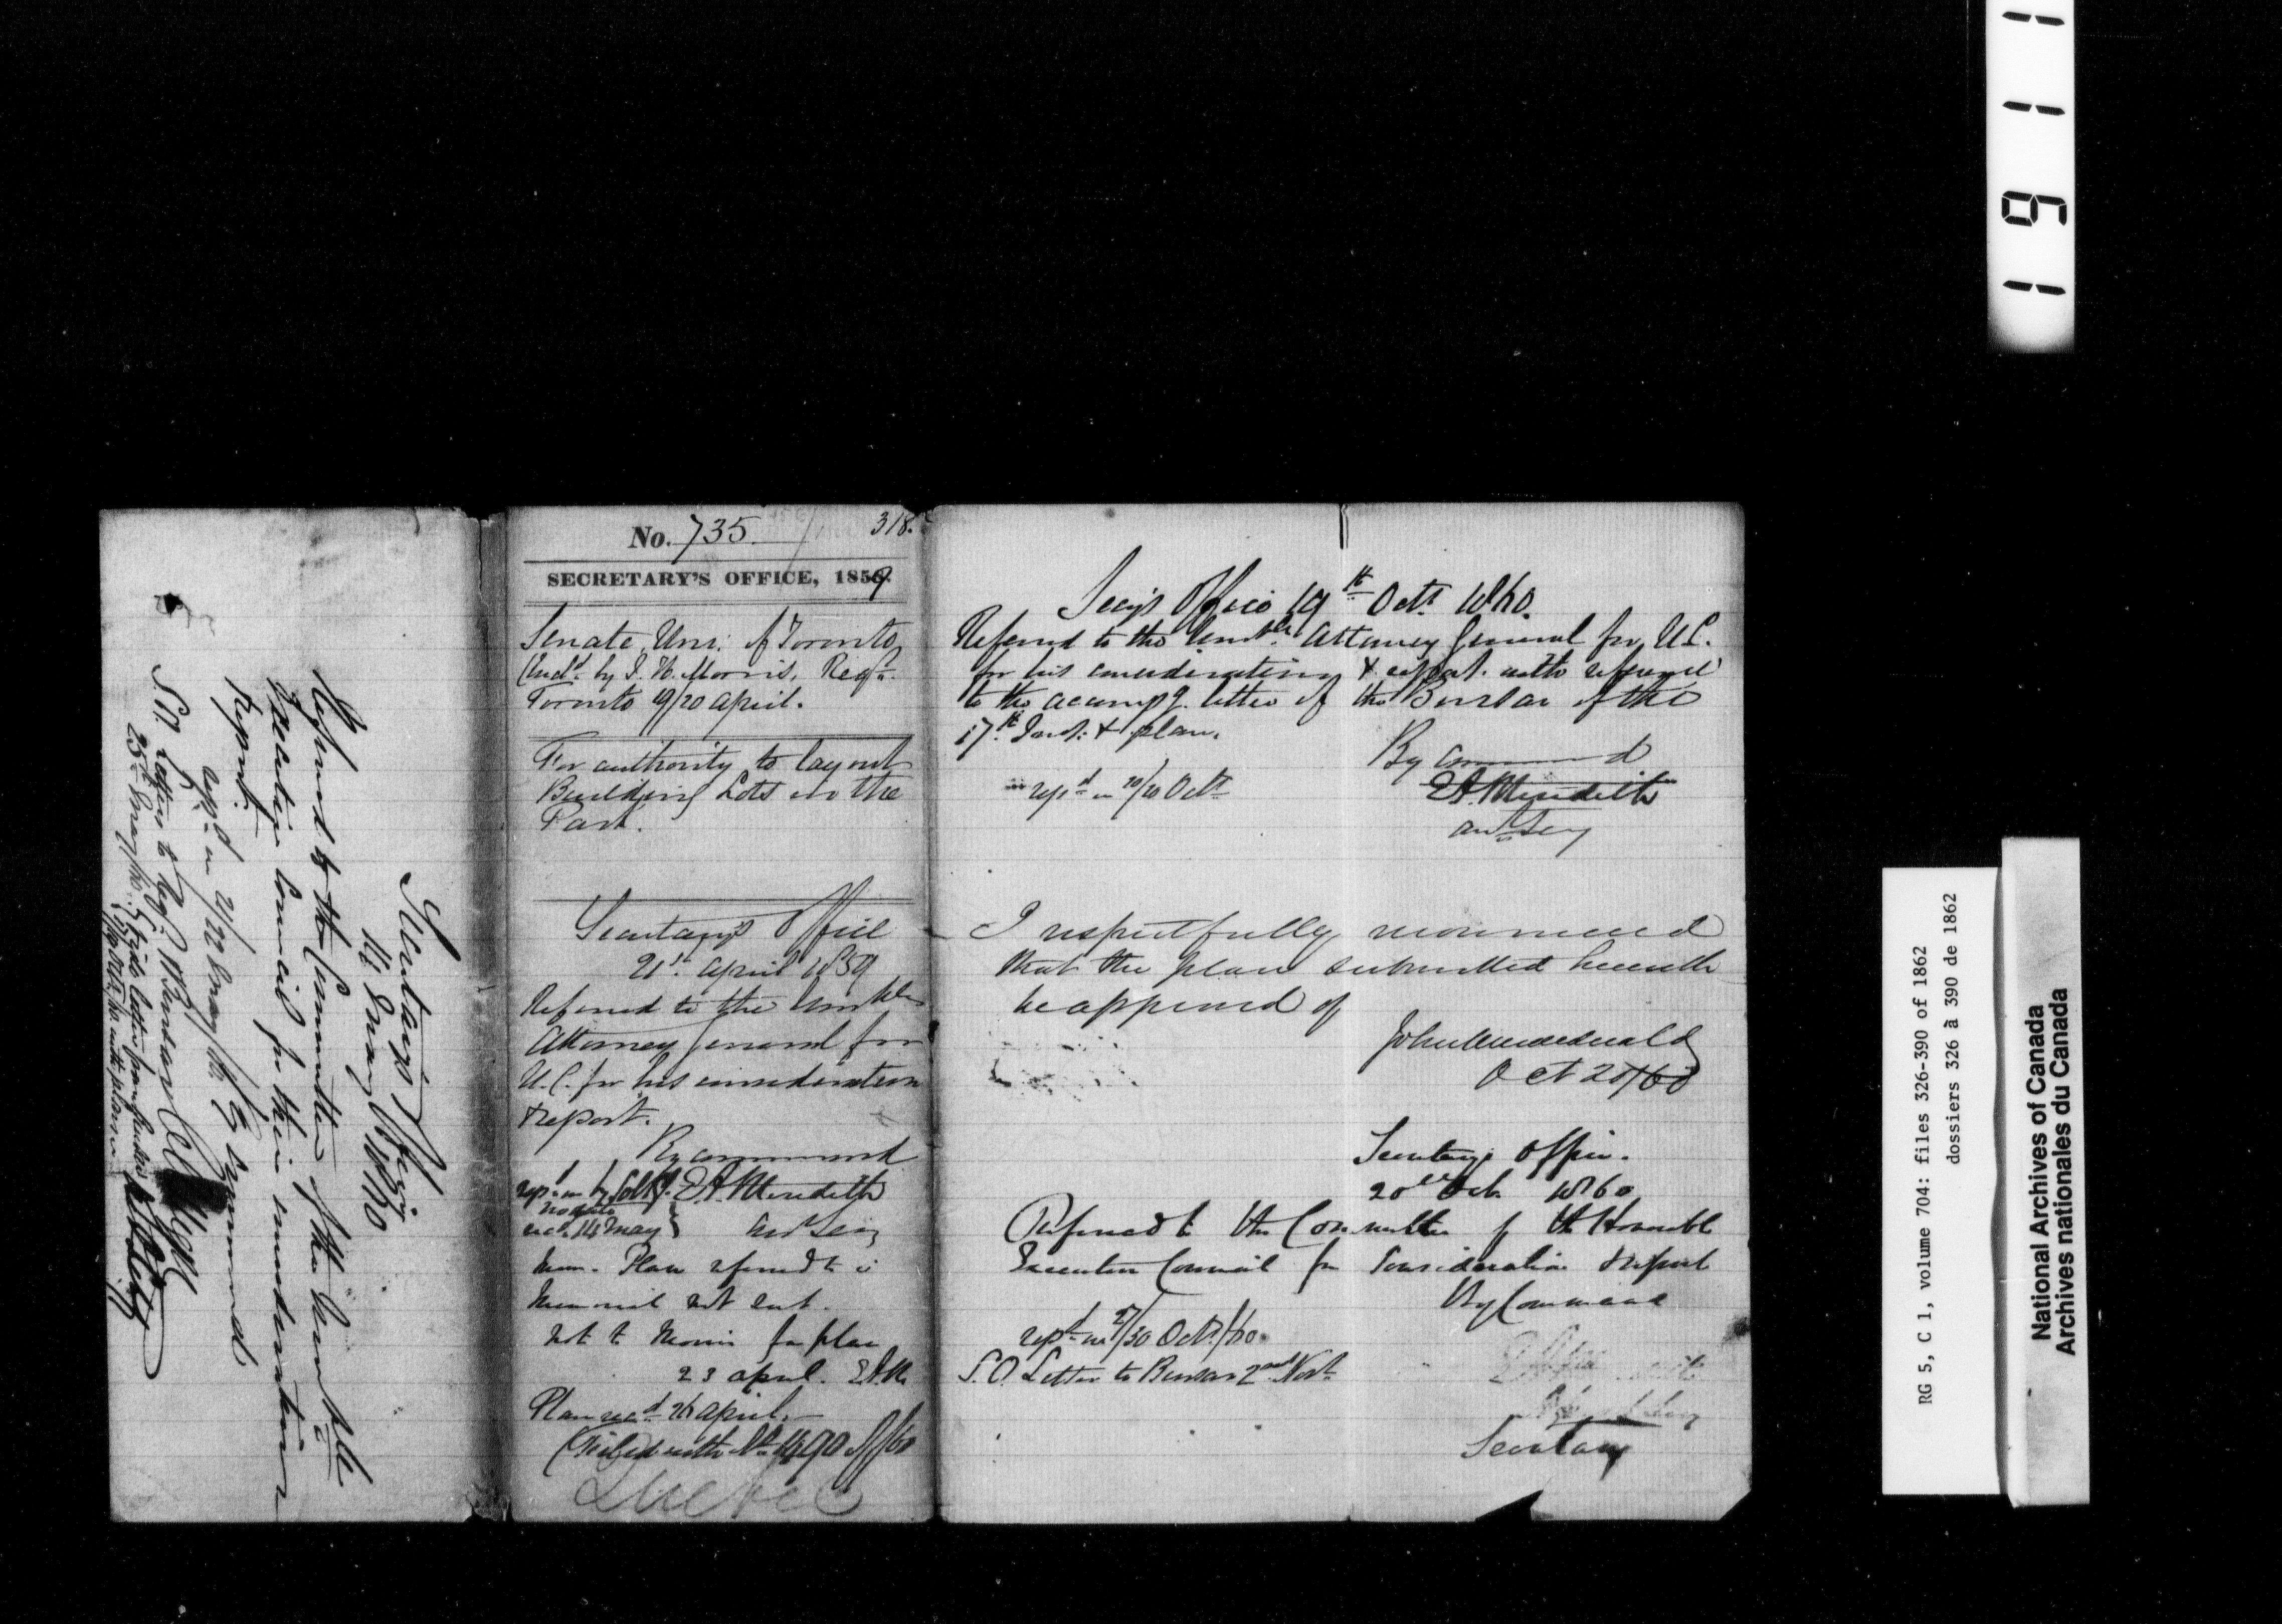 Secretary's Office
14 May 1860
Referred to the Committee of the Hon'ble
Executive Council for their consideration
& report.
By command
rep'd in 21/22 May /60
S.O. Letter to Bursar
25th May /60
No. 735. 318.
SECRETARY'S OFFICE, 1859
Senate, Uni: of Toronto
(Encd. by J. H. Morris, Regr.
Toronto 19/20 April.
For authority to lay out
Building Lots in the
Park.
Secretary's Office
21st April 1859
Referred to the Honble
Attorney General for
U.C. for his consideration
& report.
By command
E A Meredith
Asst Secy
recd. 14 May
Mem. Plan referred to in
Memorial not sent.
Not to Morris for plan
23 April. E.A.M.
Plan recd 26 April.
(Filed with No 1490 of /60
Quebec
Secy's Office 19th Octr 1860.
Referred to the Honble Attorney General for U.C.
for his consideration & report with reference
to the accompg. letter of the Bursar of the
17th Inst. & plan.
By command
E A Meredith
Asst Secy
repd in 20/20 Octr
I respectfully recommend
that the plan submitted herewith
be approved of
John A Macdonald
Oct 20/60
Secretary's Office.
20th Oct. 1860
Referred to the Committee of the Honorable
Executive Council for Consideration & Report
By Command
repd in 27/30 Octr/60.
S.O. Letter to Bursar 2nd Novr
Secretary
1911
RG 5, C 1, volume 704: files 326-390 of 1862
dossiers 326 à 390 de 1862
National Archives of Canada
Archives nationales du Canada